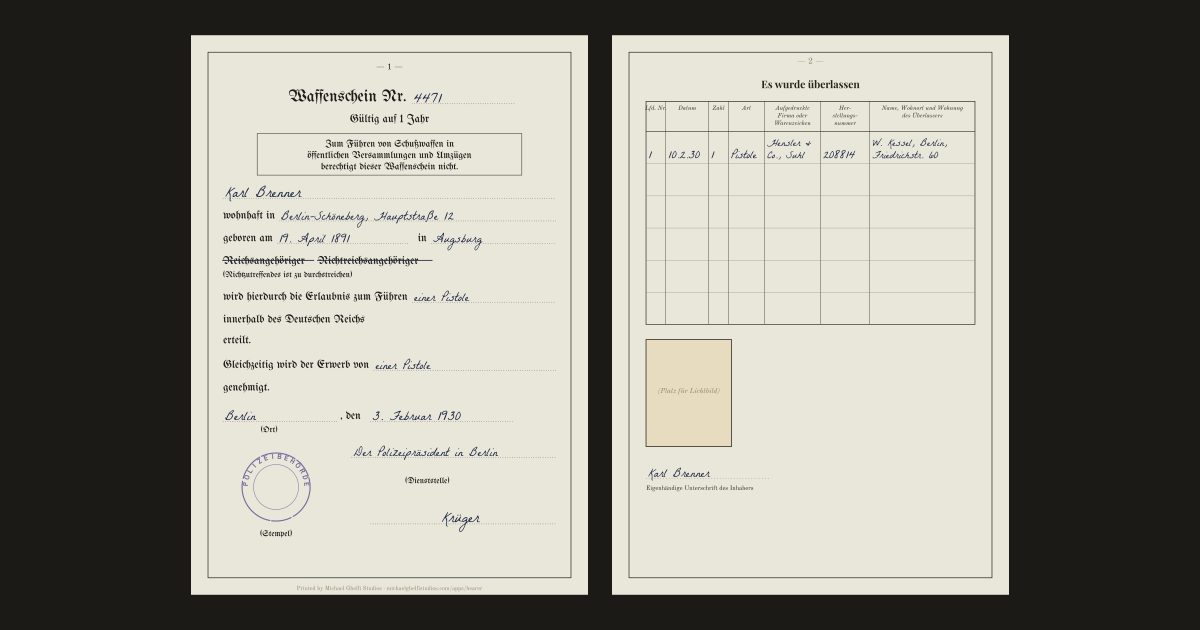 — 1 —
Waffenschein Nr. 4471
Gültig auf 1 Jahr
Zum Führen von Schußwaffen in
öffentlichen Versammlungen und Umzügen
berechtigt dieser Waffenschein nicht.
Karl Brenner
wohnhaft in Berlin-Schöneberg, Hauptstraße 12
geboren am 19. April 1891 in Augsburg
Reichsangehöriger — Nichtreichsangehöriger
(Nichtzutreffendes ist zu durchstreichen)
wird hierdurch die Erlaubnis zum Führen einer Pistole
innerhalb des Deutschen Reichs
erteilt.
Gleichzeitig wird der Erwerb von einer Pistole
genehmigt.
Berlin, den 3. Februar 1930
(Ort)
Der Polizeipräsident in Berlin
(Dienststelle)
POLIZEIBEHÖRDE
Krüger
(Stempel)
Printed by Michael Ghelfi Studios · michaelghelfistudios.com/apps/bearer
— 2 —
Es wurde überlassen
Lfd. Nr. Datum Zahl Art Aufgedruckte Firma oder Warenzeichen Her-stellungs-nummer Name, Wohnort und Wohnung des Überlassers
1 10.2.30 1 Pistole Hensler & Co., Suhl 208814 W. Kessel, Berlin, Friedrichstr. 60
(Platz für Lichtbild)
Karl Brenner
Eigenhändige Unterschrift des Inhabers